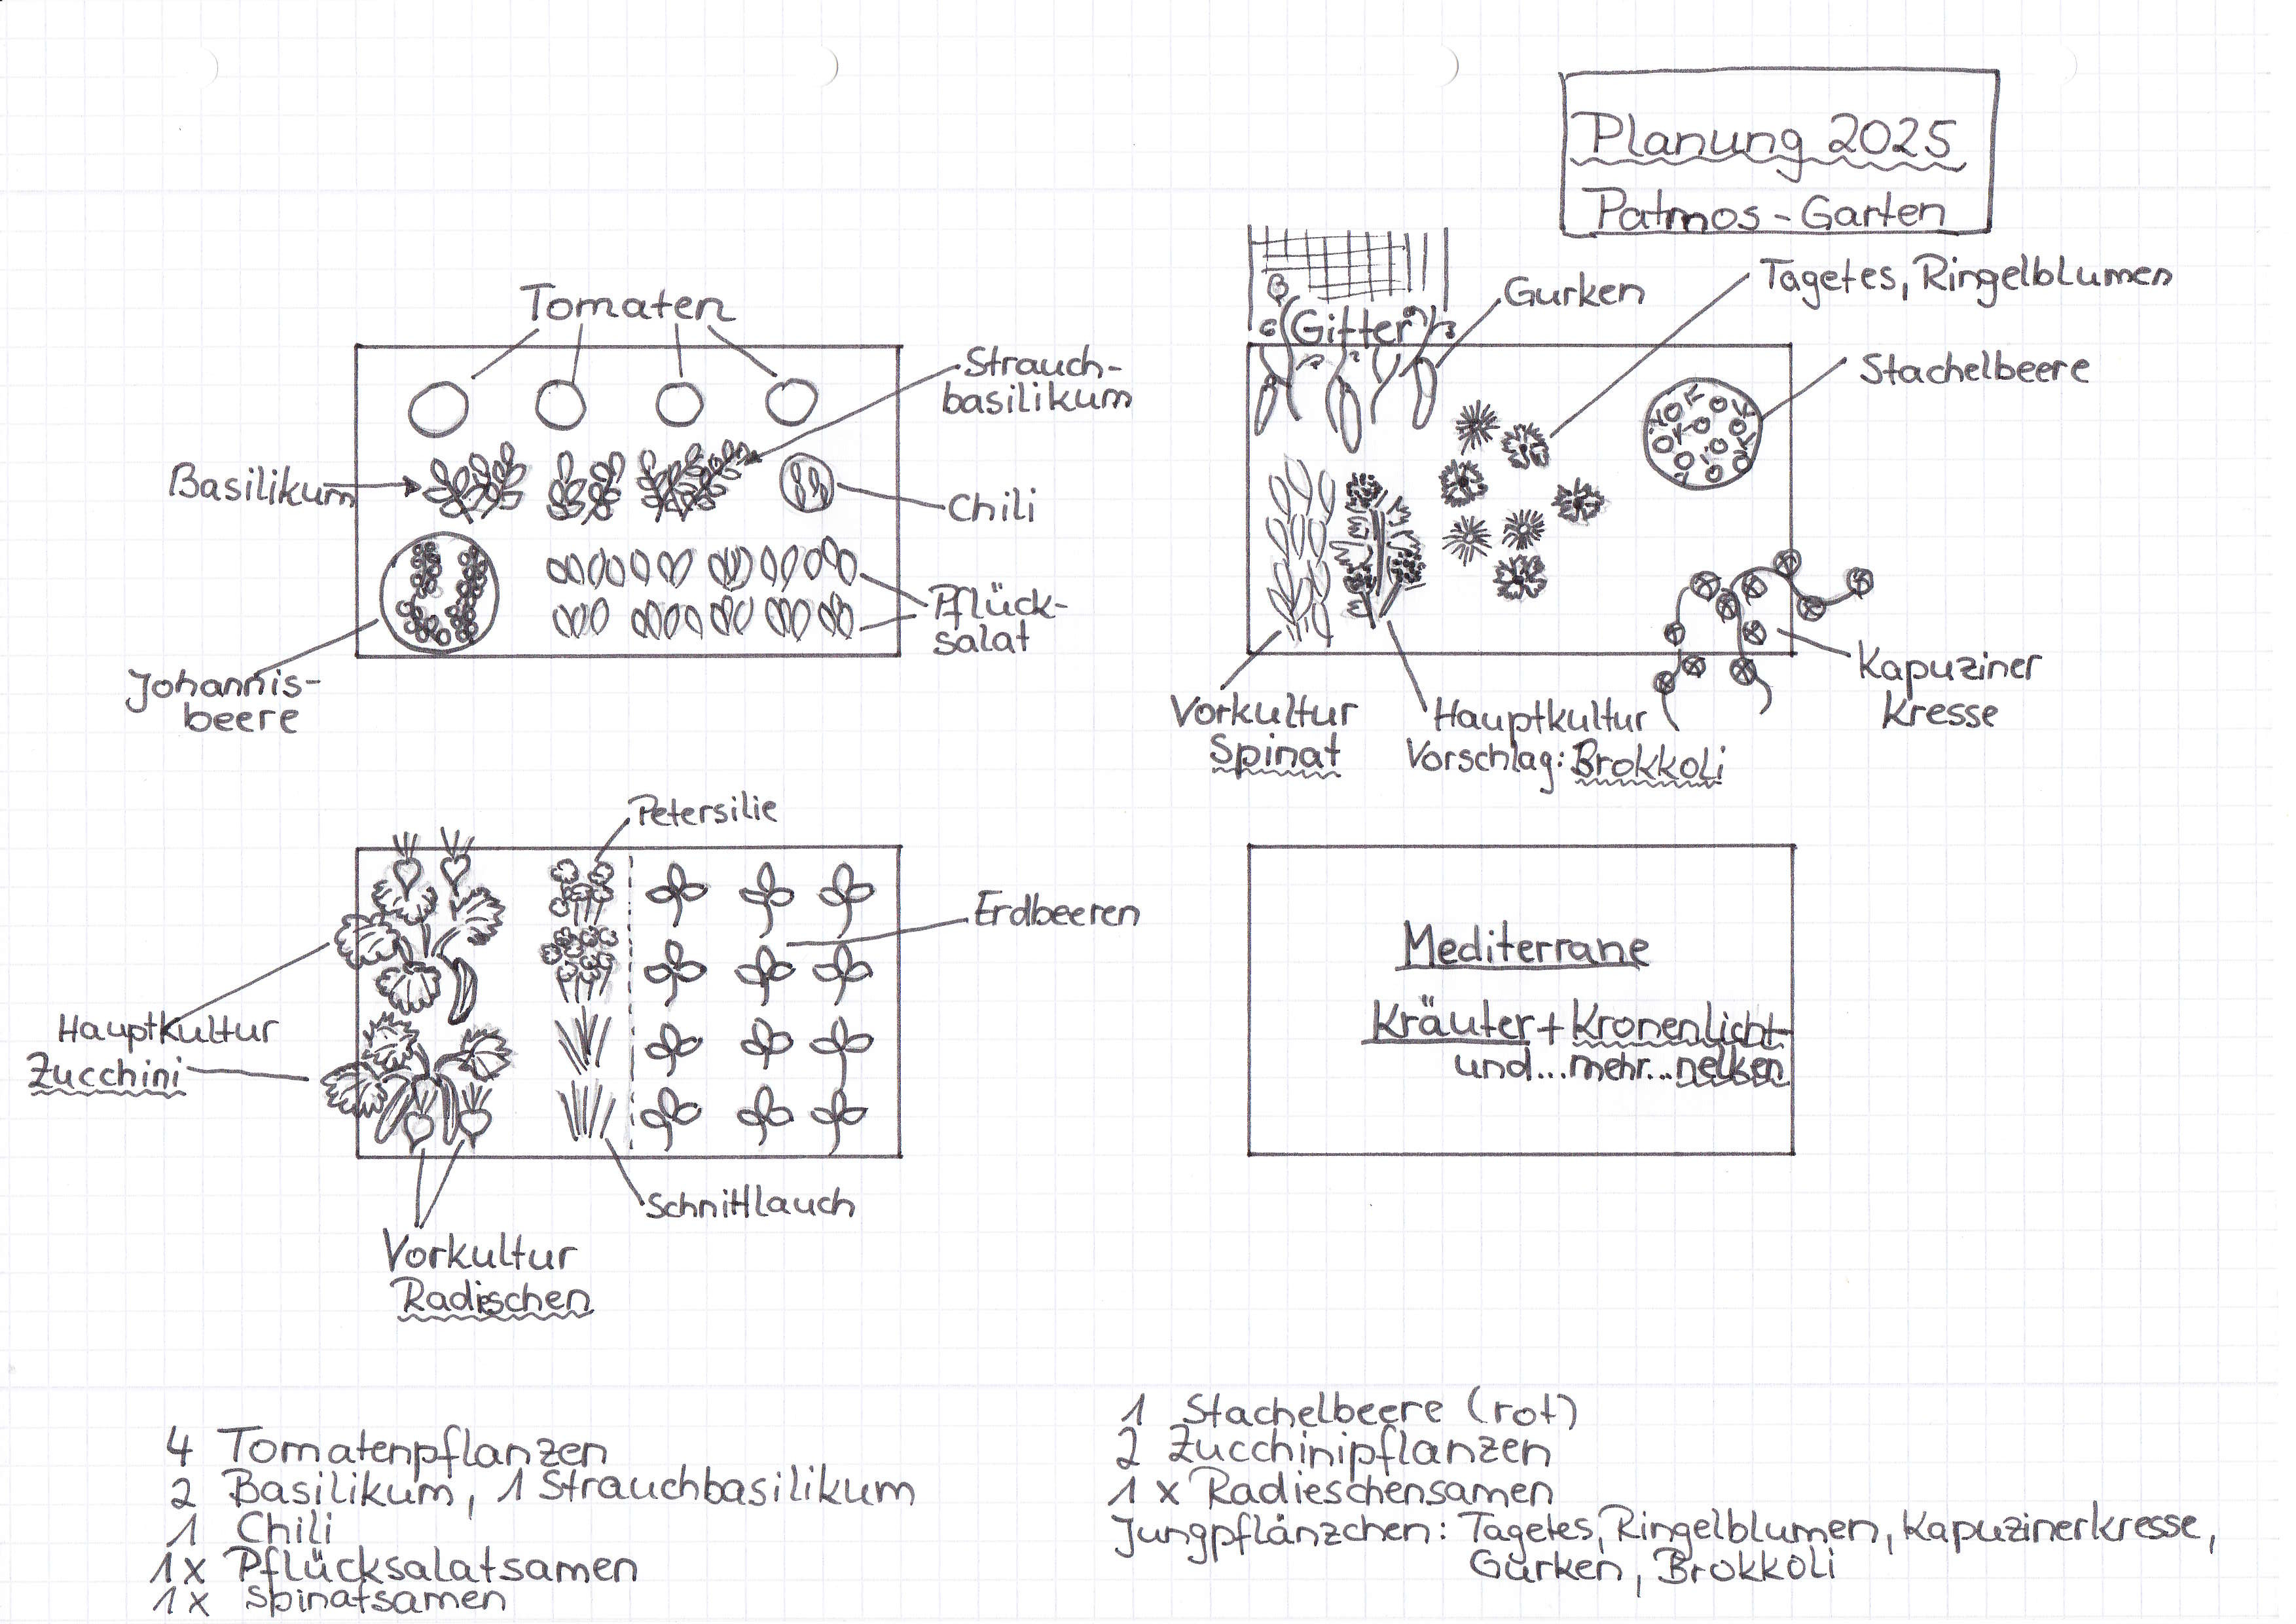 Planung 2025
Patmos-Garten
Tomaten
Strauch-
basilikum
Basilikum
Chili
Pflück-
salat
Johannis-
beere
(Gitter)
Gurken
Tagetes, Ringelblumen
Stachelbeere
Kapuziner
Kresse
Vorkultur
Spinat
Hauptkultur
Vorschlag: Brokkoli
Petersilie
Erdbeeren
Hauptkultur
Zucchini
Schnittlauch
Vorkultur
Radischen
Mediterrane
Kräuter + Kronenlicht-
und...mehr...nelken
4 Tomatenpflanzen
2 Basilikum, 1 Strauchbasilikum
1 Chili
1x Pflücksalatsamen
1x Spinatsamen
1 Stachelbeere (rot)
2 Zucchinipflanzen
1 x Radieschensamen
Jungpflänzchen: Tagetes, Ringelblumen, Kapuzinerkresse,
Gurken, Brokkoli